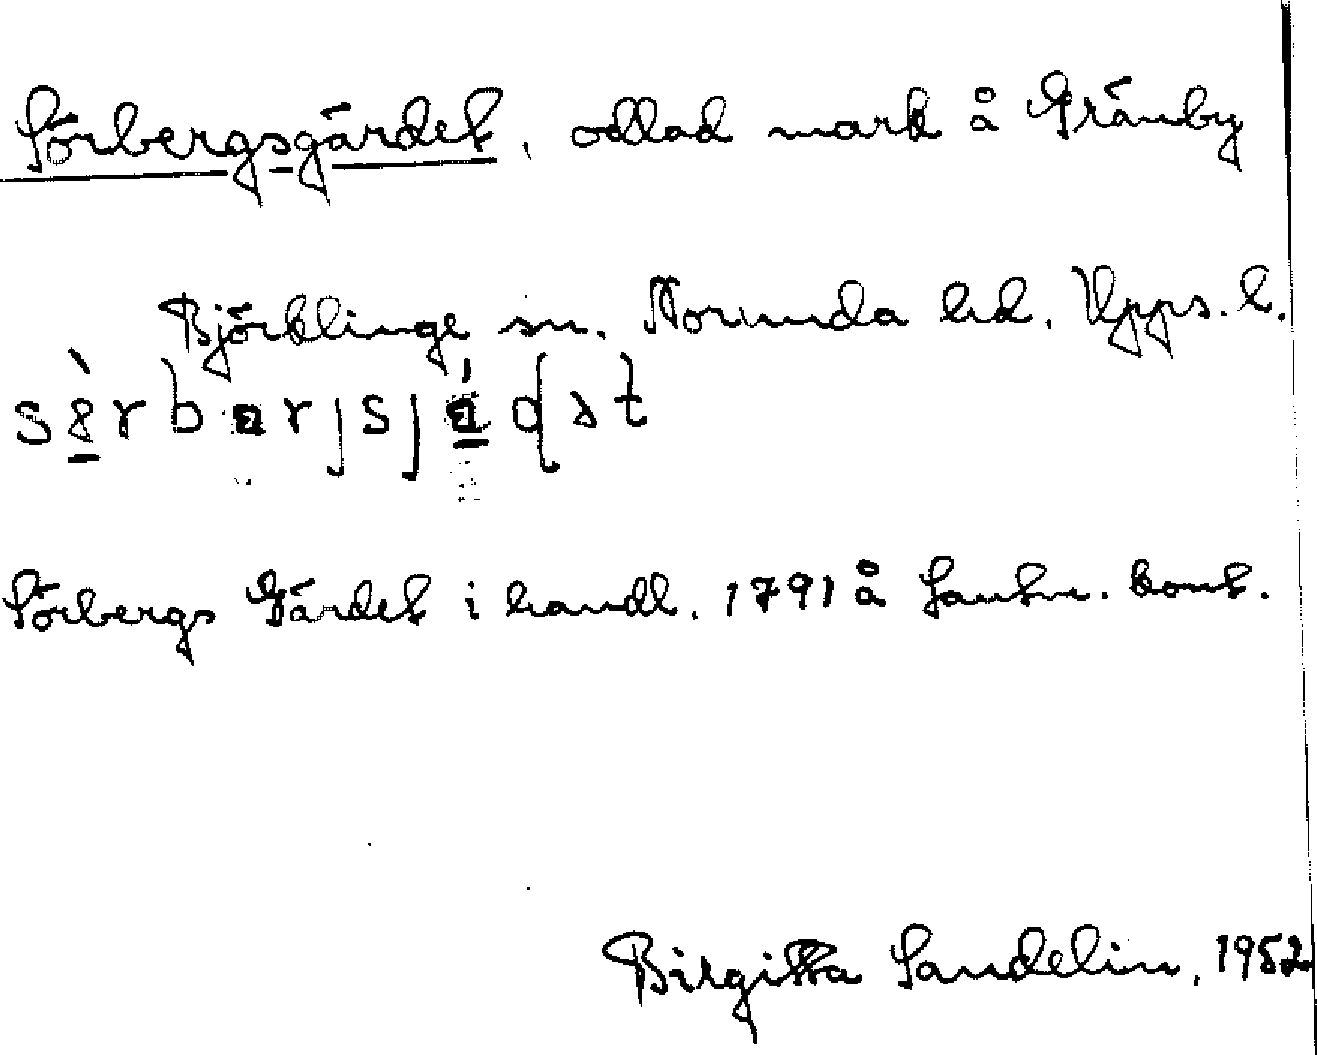 Sörbergsgärdet, odlad mark å Gränby
Björklinge sn. Norunda hd. Upps. l.
Sörbergs Gärdet i handl. 1791 å Lantm. kont.
Birgitta Sandelin, 1952